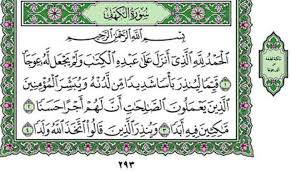 سُورَةُ الكَهْفِ
بِسْمِ اللَّهِ الرَّحْمَٰنِ الرَّحِيمِ
الْحَمْدُ لِلَّهِ الَّذِي أَنزَلَ عَلَىٰ عَبْدِهِ الْكِتَٰبَ وَلَمْ يَجْعَل لَّهُ عِوَجًا
١ قَيِّمًا لِّيُنذِرَ بَأْسًا شَدِيدًا مِّن لَّدُنْهُ وَيُبَشِّرَ الْمُؤْمِنِينَ
الَّذِينَ يَعْمَلُونَ الصَّٰلِحَٰتِ أَنَّ لَهُمْ أَجْرًا حَسَنًا ٢
مَّٰكِثِينَ فِيهِ أَبَدًا ٣ وَيُنذِرَ الَّذِينَ قَالُوا اتَّخَذَ اللَّهُ وَلَدًا ٤
٢٩٣